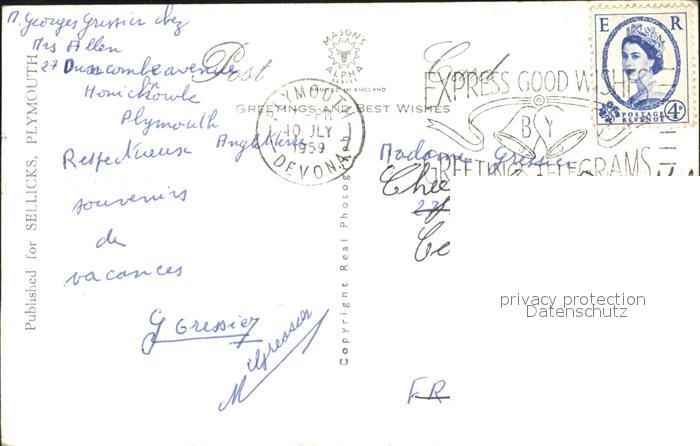 M. Georges Gressier chez
Mrs Allen
27 Duncombe avenue
Honicknowle
Plymouth
Angleterre
Respectueux
souvenirs
de
vacances
G Gressier
M Gressier
Published for SELLICKS, PLYMOUTH
Post Card
MASON'S
ALPHA
SERIES
PRINTED IN ENGLAND
GREETINGS AND BEST WISHES
Copyright Real Photograph
PLYMOUTH
10 JLY
1959
DEVON
EXPRESS GOOD WISHES
BY
GREETINGS TELEGRAMS
E R
POSTAGE
REVENUE
4D
Madame Gressier
Che
27
Ce
FR
privacy protection
Datenschutz